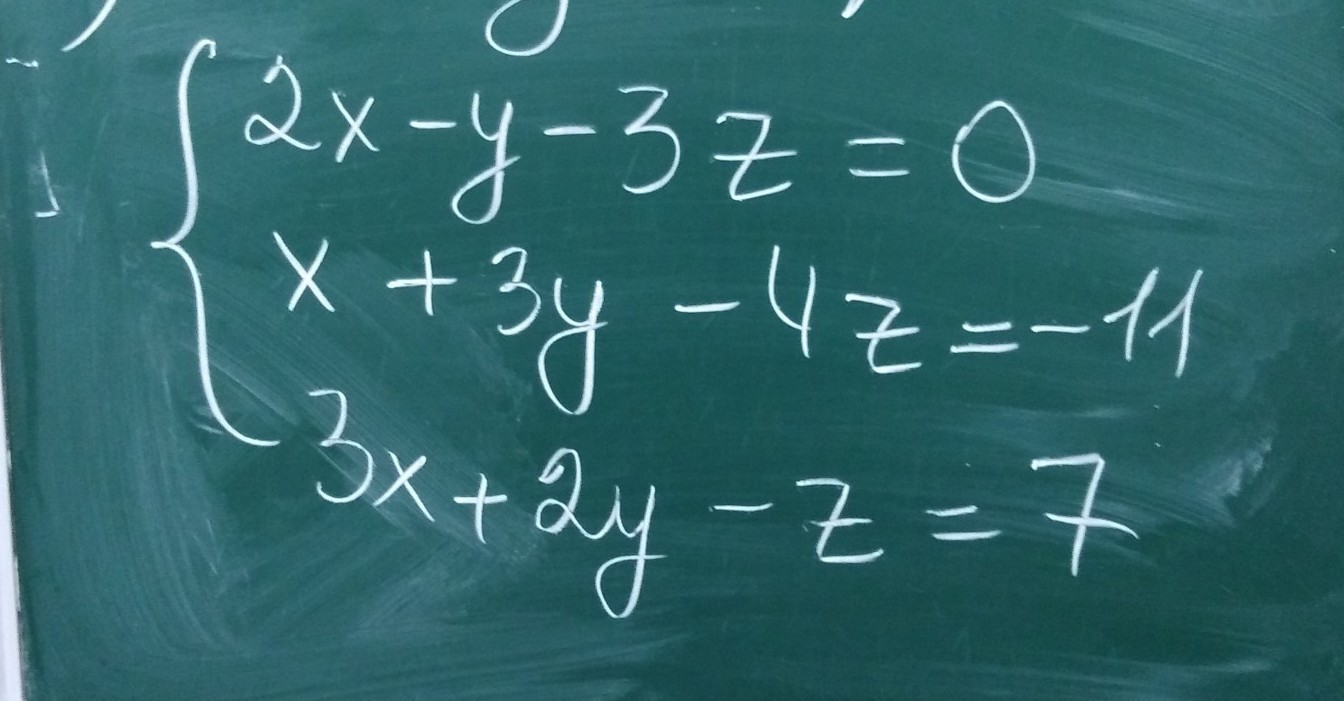 2x - y - 3z = 0
x + 3y - 4z = -11
3x + 2y - z = 7